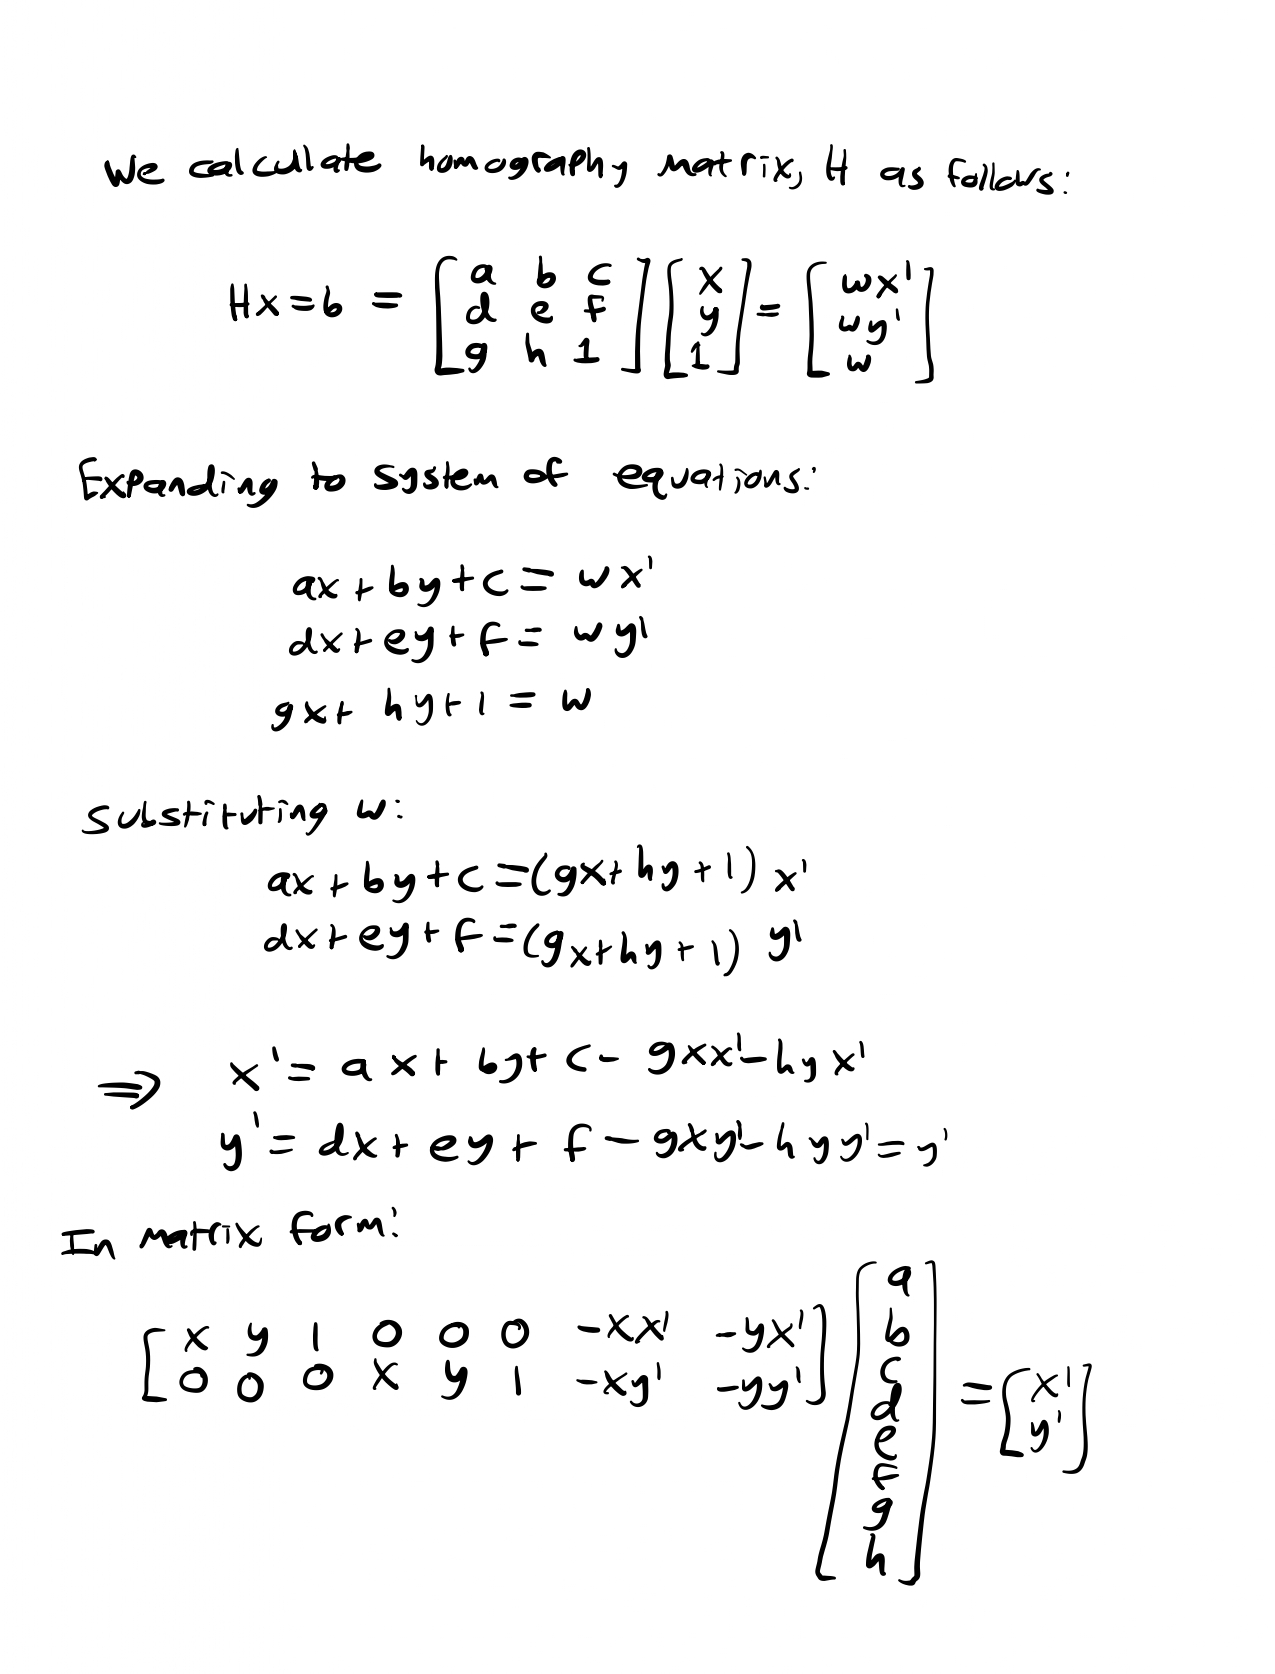 We calculate homography matrix, H as follows:
Hx = b = [a b c; d e f; g h 1] [x; y; 1] = [wx'; wy'; w]
Expanding to system of equations:
ax + by + c = wx'
dx + ey + f = wy'
gx + hy + 1 = w
Substituting w:
ax + by + c = (gx + hy + 1) x'
dx + ey + f = (gx + hy + 1) y'
⇒ x' = ax + by + c - gxx' - hyx'
y' = dx + ey + f - gxy' - hyy' = y'
In matrix form:
[x y 1 0 0 0 -xx' -yx'; 0 0 0 x y 1 -xy' -yy'] [a; b; c; d; e; f; g; h] = [x'; y']